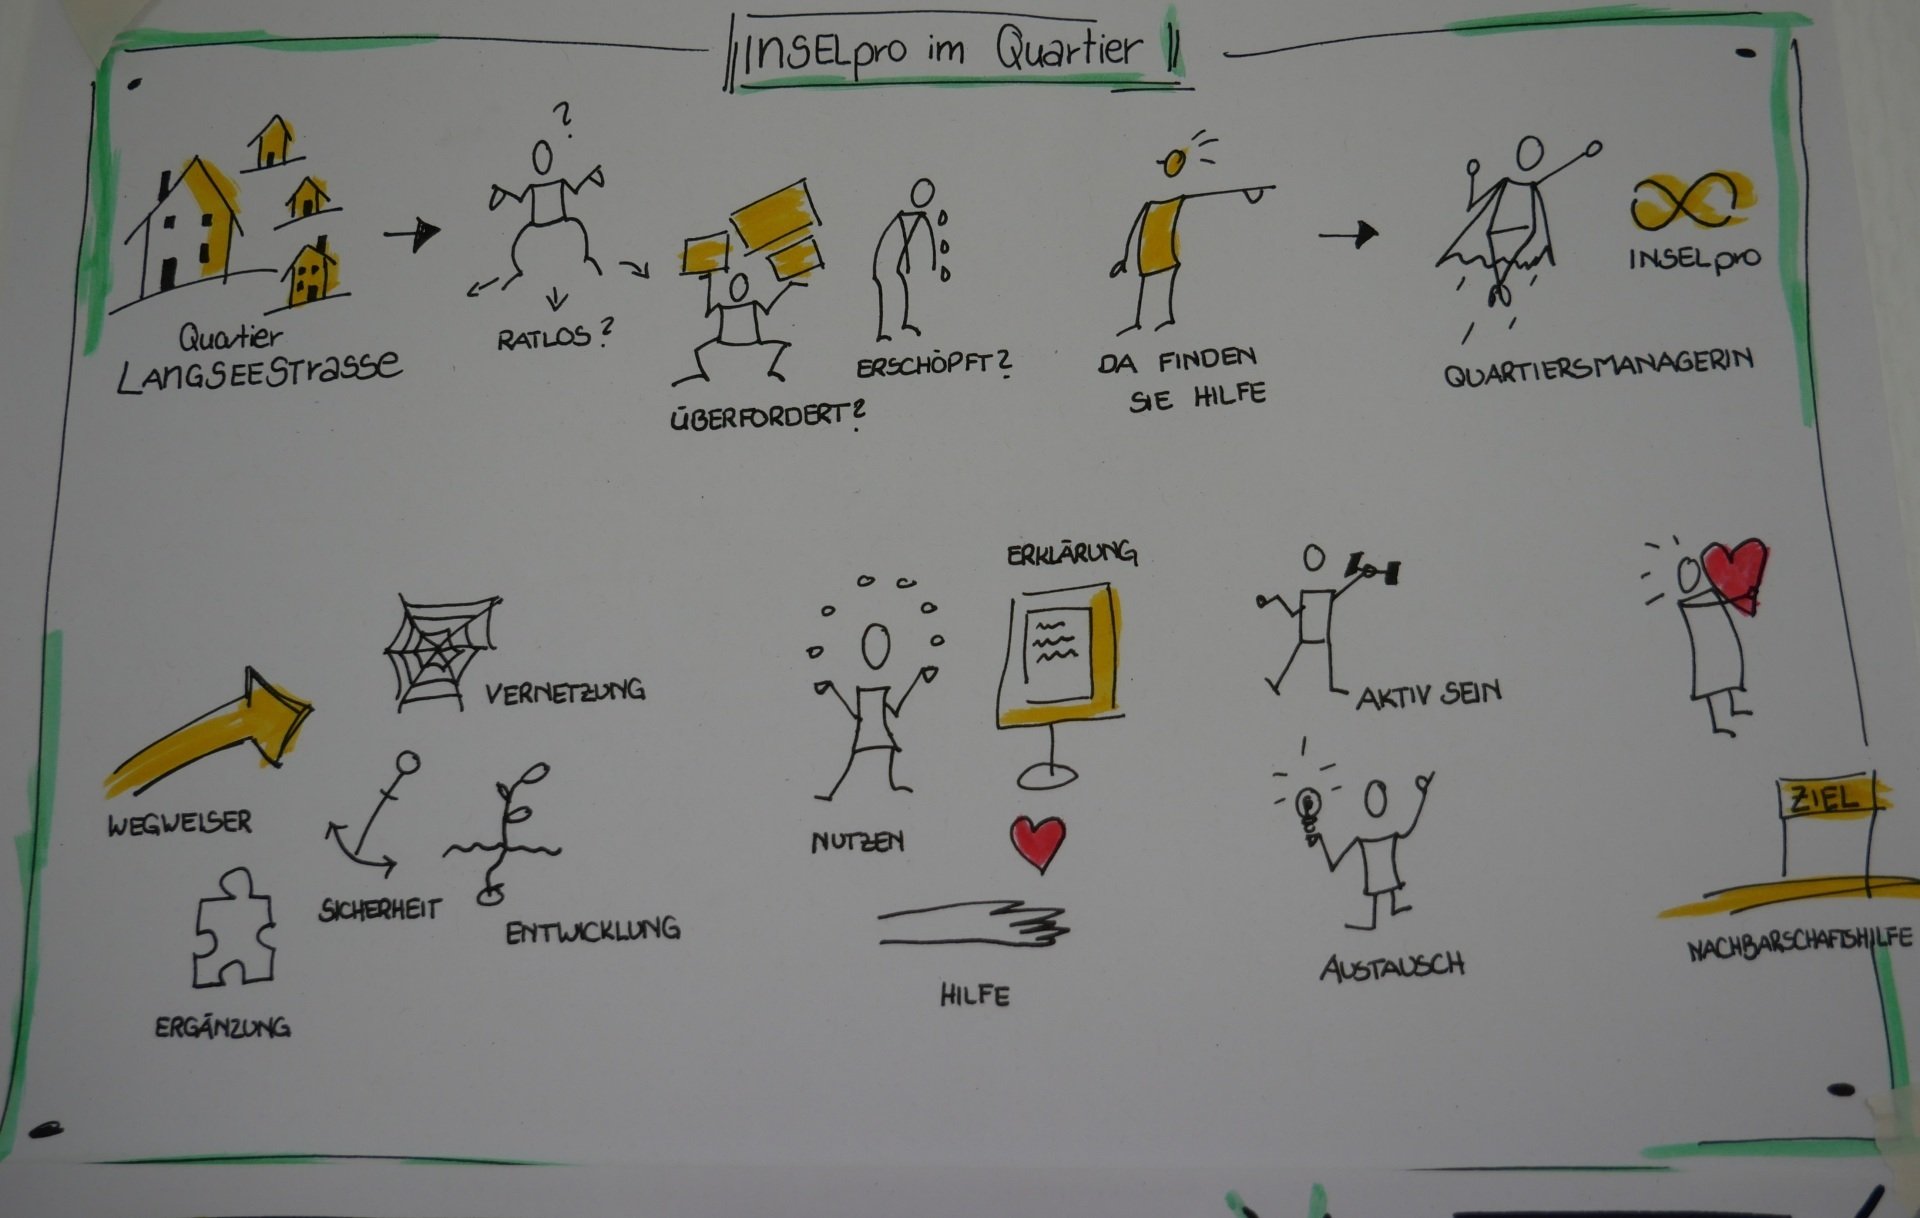 INSELpro im Quartier
Quartier
LANGSEESTrasse
RATLOS?
ÜBERFORDERT?
ERSCHÖPFT?
DA FINDEN
SIE HILFE
QUARTIERSMANAGERIN
INSELpro
WEGWEISER
VERNETZUNG
SICHERHEIT
ENTWICKLUNG
ERGÄNZUNG
NUTZEN
ERKLÄRUNG
HILFE
AKTIV SEIN
AUSTAUSCH
ZIEL
NACHBARSCHAFTSHILFE